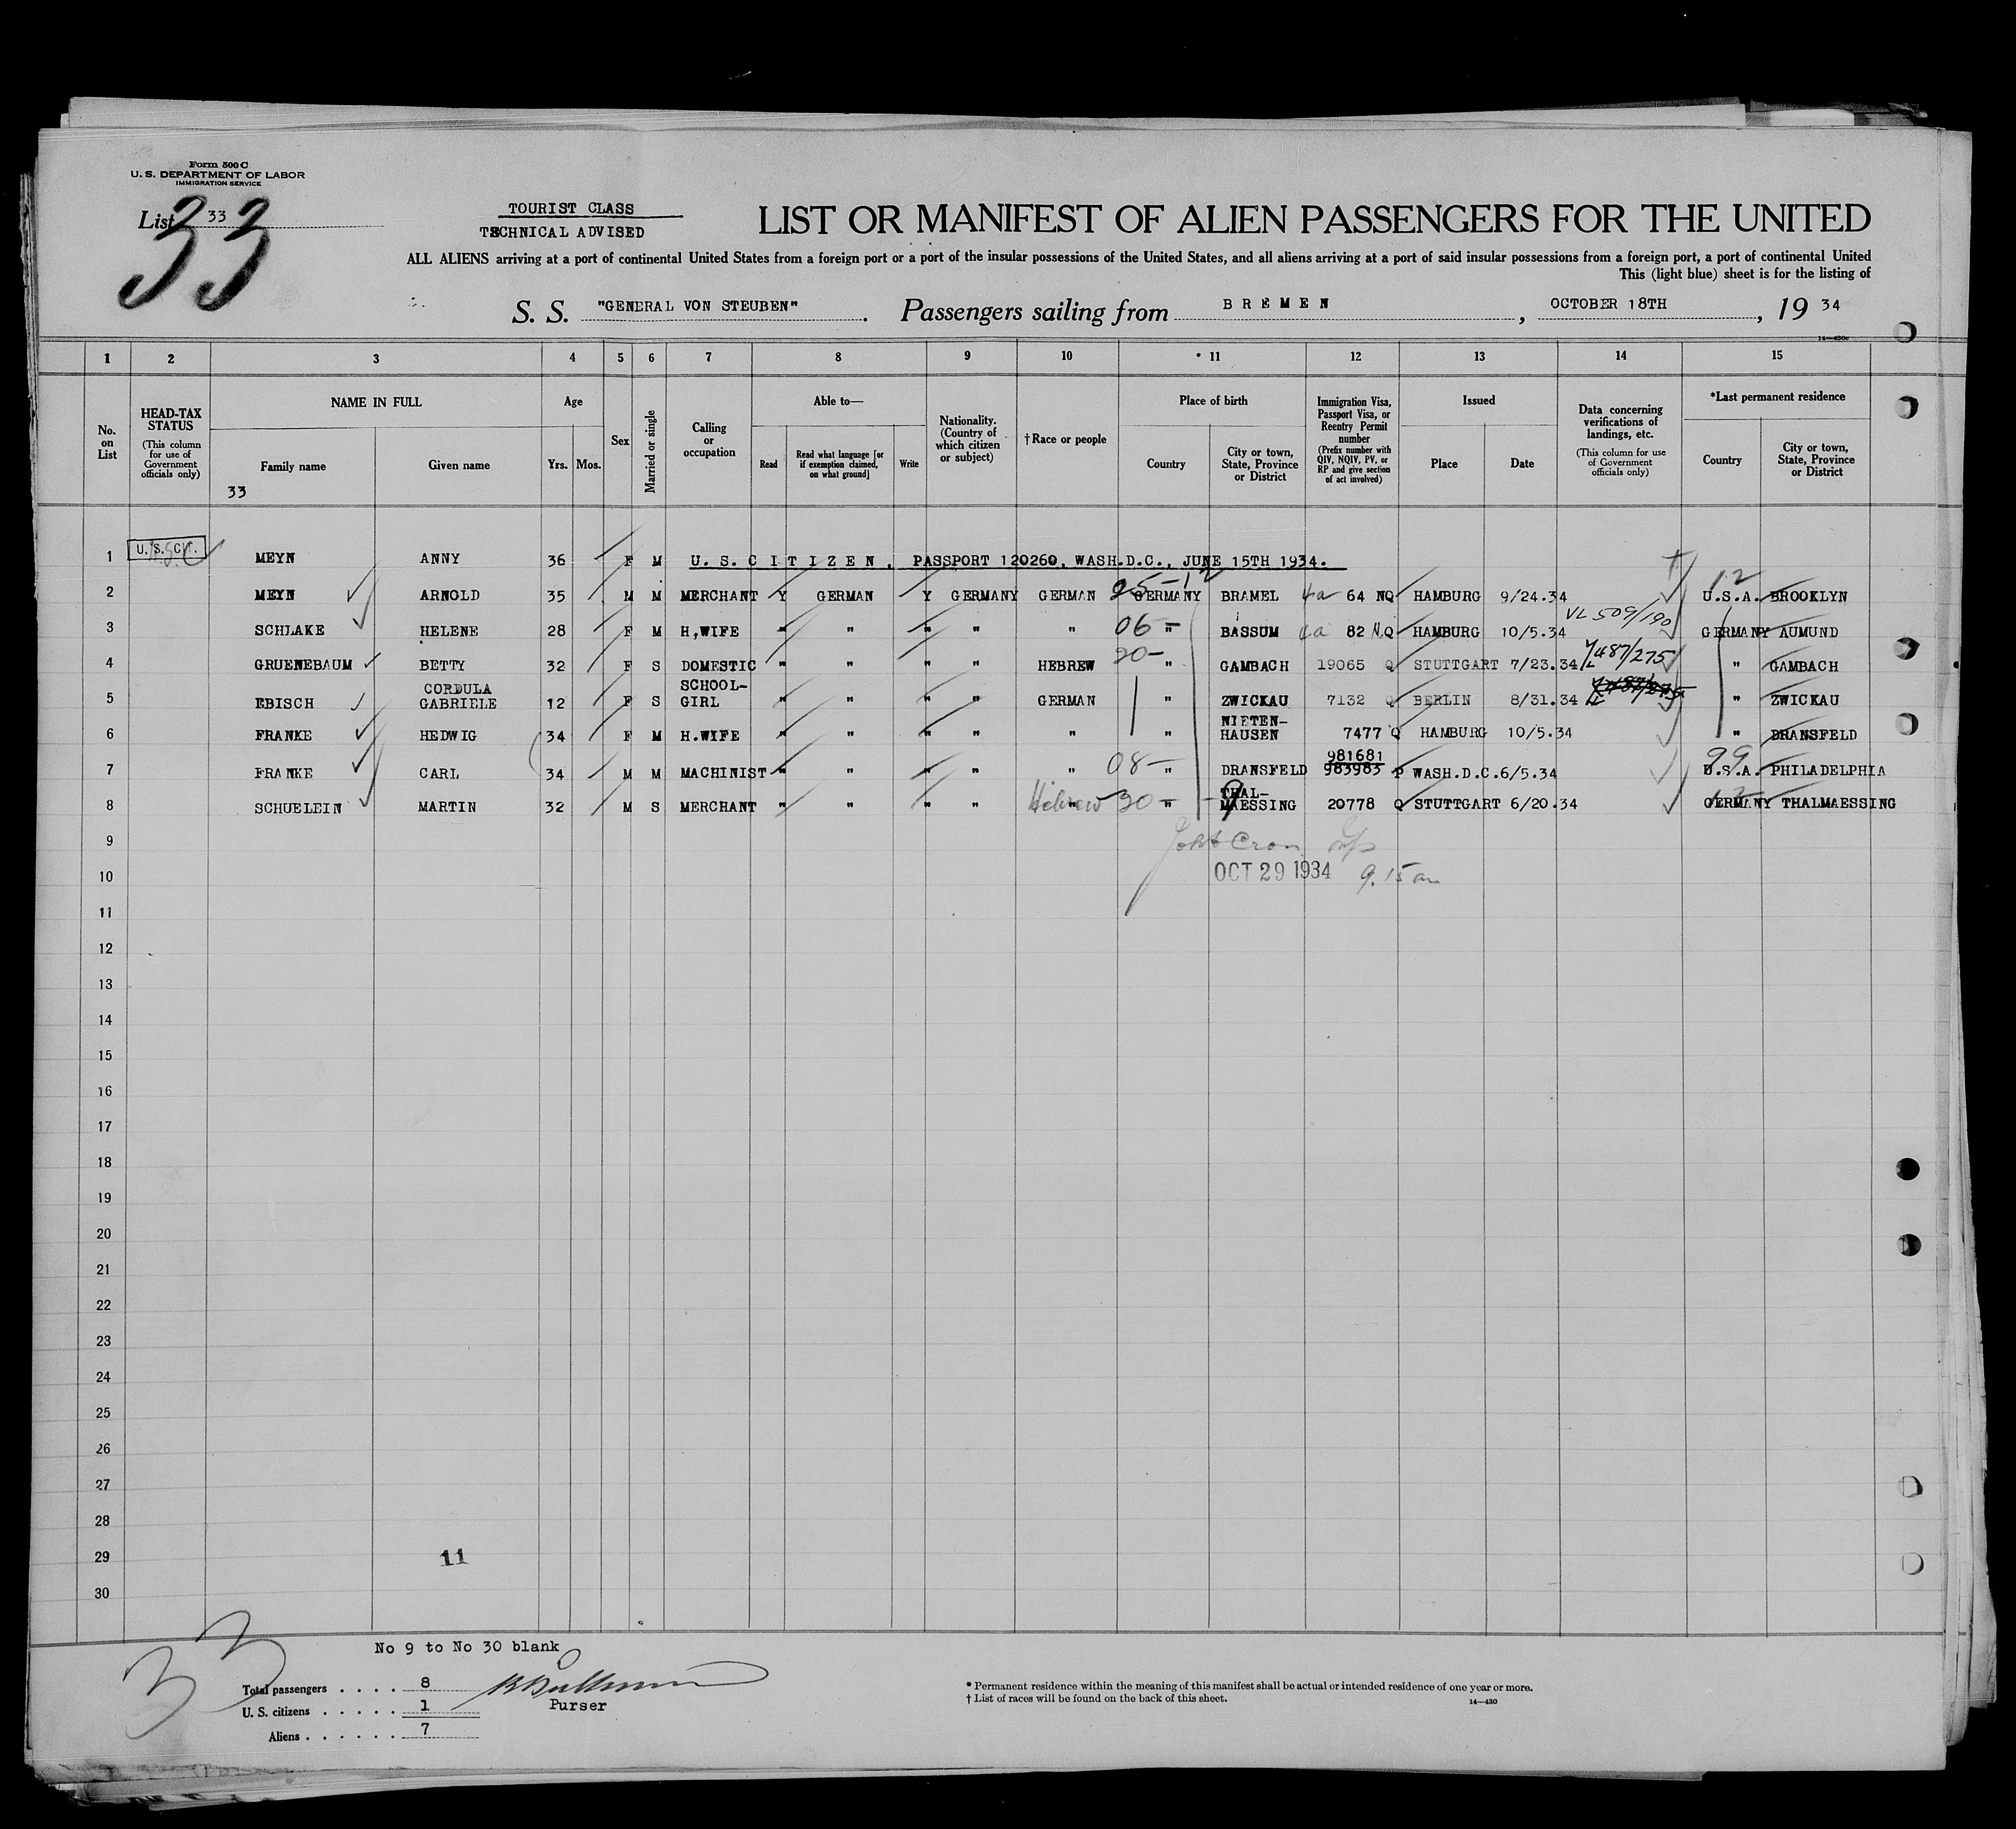 Form 500 C
U. S. DEPARTMENT OF LABOR
IMMIGRATION SERVICE
List 33
33
TOURIST CLASS
TECHNICAL ADVISED
LIST OR MANIFEST OF ALIEN PASSENGERS FOR THE UNITED
ALL ALIENS arriving at a port of continental United States from a foreign port or a port of the insular possessions of the United States, and all aliens arriving at a port of said insular possessions from a foreign port, a port of continental United
This (light blue) sheet is for the listing of
S. S. "GENERAL VON STEUBEN". Passengers sailing from BREMEN, OCTOBER 18TH, 19 34
14—430c
1 2 3 4 5 6 7 8 9 10 * 11 12 13 14 15
No. on List
HEAD-TAX STATUS
(This column for use of Government officials only)
NAME IN FULL
Family name
Given name
33
Age
Yrs. Mos.
Sex
Married or single
Calling or occupation
Able to—
Read
Read what language [or if exemption claimed, on what ground]
Write
Nationality. (Country of which citizen or subject)
† Race or people
Place of birth
Country
City or town, State, Province or District
Immigration Visa, Passport Visa, or Reentry Permit number
(Prefix number with QIV, NQIV, PV, or RP and give section of act involved)
Issued
Place
Date
Data concerning verifications of landings, etc.
(This column for use of Government officials only)
*Last permanent residence
Country
City or town, State, Province or District
1 U. S. CIT. MEYN ANNY 36 F M U. S. CITIZEN, PASSPORT 120260, WASH.D.C., JUNE 15TH 1934.
2 MEYN ARNOLD 35 M M MERCHANT Y GERMAN Y GERMANY GERMAN GERMANY BRAMEL 4a 64 NQ HAMBURG 9/24.34 12 U.S.A. BROOKLYN
3 SCHLAKE HELENE 28 F M H,WIFE " " " " " 06- " BASSUM 4a 82 NQ HAMBURG 10/5.34 VL 509/190 GERMANY AUMUND
4 GRUENEBAUM BETTY 32 F S DOMESTIC " " " " HEBREW 20- " GAMBACH 19065 Q STUTTGART 7/23.34 487/275 " GAMBACH
5 EBISCH CORDULA GABRIELE 12 F S SCHOOL-GIRL " " " " GERMAN " ZWICKAU 7132 Q BERLIN 8/31.34 " ZWICKAU
6 FRANKE HEDWIG 34 F M H.WIFE " " " " " " NIETEN-HAUSEN 7477 Q HAMBURG 10/5.34 " DRANSFELD
7 FRANKE CARL 34 M M MACHINIST " " " " " 08- " DRANSFELD 981681 983983 P WASH.D.C. 6/5.34 99 U.S.A. PHILADELPHIA
8 SCHUELEIN MARTIN 32 M S MERCHANT " " " " " Hebrew 30- " THAL-MAESSING 20778 Q STUTTGART 6/20.34 GERMANY THALMAESSING
9
10 OCT 29 1934 9.15 am
11
12
13
14
15
16
17
18
19
20
21
22
23
24
25
26
27
28
29 11
30
33
No 9 to No 30 blank
Total passengers . . . . 8
U. S. citizens . . . . . 1
Aliens . . . . . . 7
Purser
* Permanent residence within the meaning of this manifest shall be actual or intended residence of one year or more.
† List of races will be found on the back of this sheet.
14—430